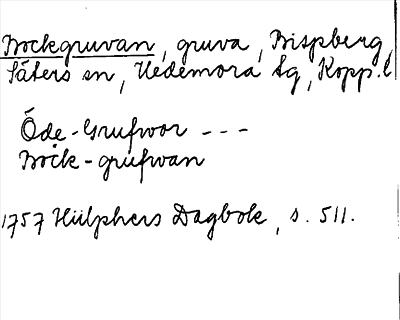 Bockgruvan, gruva, Bispberg,
Säters sn, Hedemora tg, Kopp. l
Öde-Grufwor ---
Bock-grufwan
1757 Hülphers Dagbok, s. 511.